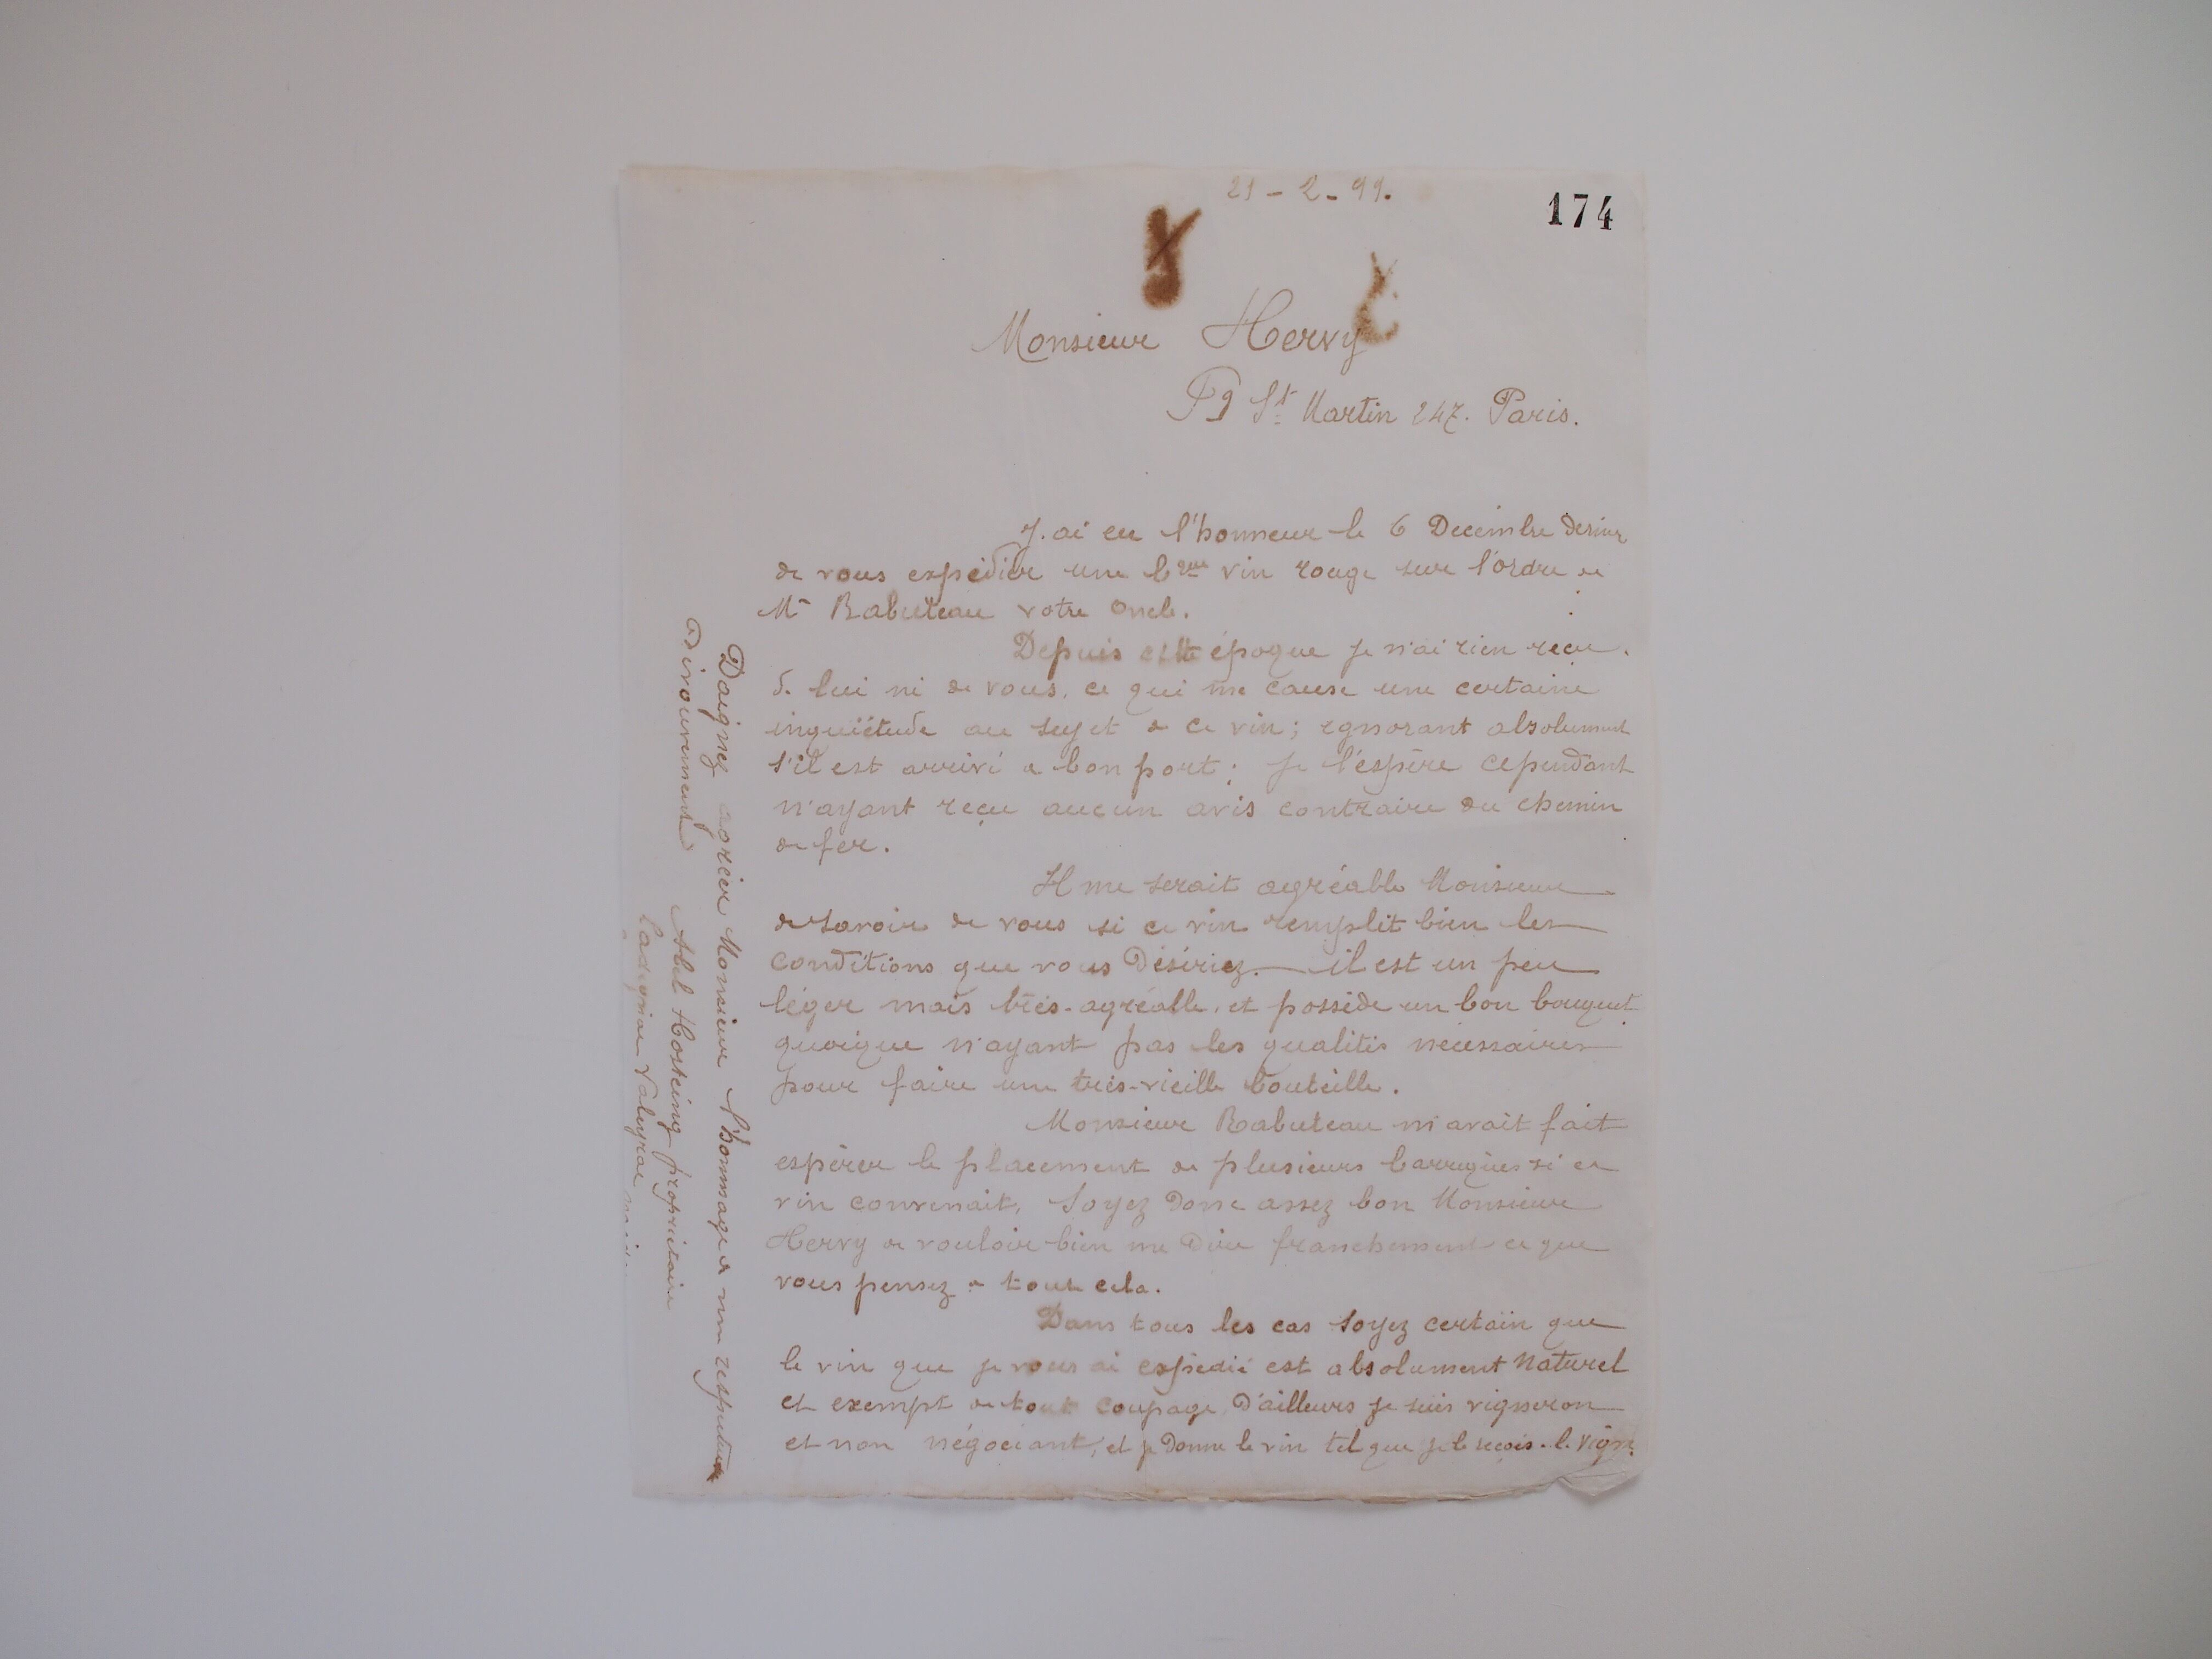 21 - 2 - 99.
174
Monsieur Hervy
Fg St Martin 247. Paris.
J'ai eu l'honneur le 6 Decembre dernier
de vous expédier une bque vin rouge sur l'ordre de
Mr Rabuteau votre oncle.
Depuis cette époque je n'ai rien reçu
de lui ni de vous, ce qui me cause une certaine
inquiétude au sujet de ce vin; ignorant absolument
s'il est arrivé a bon port; je l'éspère cependant
n'ayant reçu aucun avis contraire du chemin
de fer.
Il me serait agréable Monsieur
de savoir de vous si ce vin remplit bien les
conditions que vous désiriez. — il est un peu
léger mais très-agréable, et possède un bon bouquet
quoique n'ayant pas les qualités nécessaires
pour faire une très-vieille bouteille.
Monsieur Rabuteau m'avait fait
espérer le placement de plusieurs barriques si ce
vin convenait, Soyez donc assez bon Monsieur
Hervy de vouloir bien me dire franchement ce que
vous pensez de tout cela.
Dans tous les cas soyez certain que
le vin que je vous ai expédié est absolument naturel
et exempt de tout coupage, d'ailleurs je suis vigneron
et non négociant, et je donne le vin tel que je le reçois de la vigne.
Daignez agréer Monsieur l'hommage de mon respectueux
dévouement
Abel Hosteing propriétaire
Valeyrac